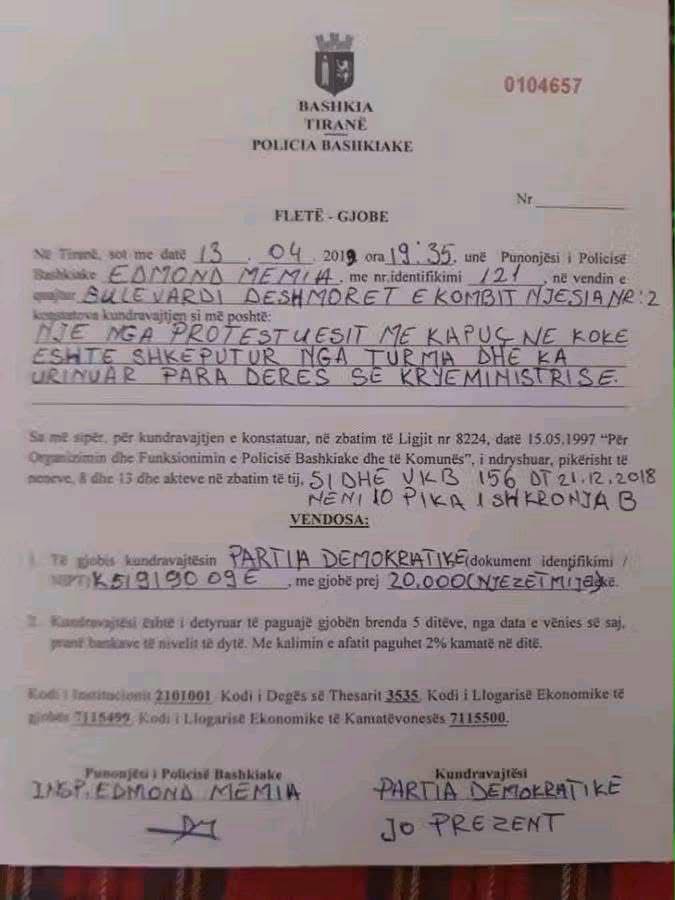 0104657
BASHKIA
TIRANË
POLICIA BASHKIAKE
Nr
FLETË - GJOBE
Në Tiranë, sot me datë 13 . 04 . 2019 ora 19:35, unë Punonjësi i Policisë
Bashkiake EDMOND MEMIA, me nr.identifikimi 121, në vendin e
quajtur BULEVARDI DESHMORET E KOMBIT NJESIA NR:2
konstatova kundravajtjen si më poshtë:
NJE NGA PROTESTUESIT ME KAPUÇ NE KOKE
ESHTE SHKEPUTUR NGA TURMA DHE KA
URINUAR PARA DERES SE KRYEMINISTRISE.
Sa më sipër, për kundravajtjen e konstatuar, në zbatim të Ligjit nr 8224, datë 15.05.1997 “Për
Organizimin dhe Funksionimin e Policisë Bashkiake dhe të Komunës”, i ndryshuar, pikërisht të
neneve, 8 dhe 13 dhe akteve në zbatim të tij, SI DHE VKB 156 DT 21.12.2018
NENI 10 PIKA 1 SHKRONJA B
VENDOSA:
1. Të gjobis kundravajtësin PARTIA DEMOKRATIKE (dokument identifikimi /
NIPT) K51919009E, me gjobë prej 20.000 (NJEZET MIJE) lekë.
2. Kundravajtësi është i detyruar të paguajë gjobën brenda 5 ditëve, nga data e vënies së saj,
pranë bankave të nivelit të dytë. Me kalimin e afatit paguhet 2% kamatë në ditë.
Kodi i Institucionit 2101001. Kodi i Degës së Thesarit 3535. Kodi i Llogarisë Ekonomike të
gjobës 7115499. Kodi i Llogarisë Ekonomike të Kamatëvonesës 7115500.
Punonjësi i Policisë Bashkiake
INSP. EDMOND MEMIA
Kundravajtësi
PARTIA DEMOKRATIKE
JO PREZENT